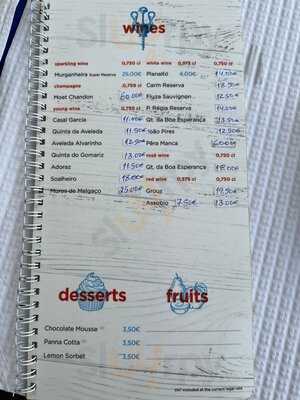 wines
sparkling wine 0,750 cl
Murganheira Super Reserva 25.00€
champagne 0,750 cl
Moet Chandon 60.00€
young wine 0,750 cl
Casal Garcia 11.00€
Quinta da Aveleda 11.50€
Aveleda Alvarinho 12.50€
Quinta do Gomariz 13.00€
Adoraz 11.50€
Soalheiro 18.00€
Muros de Melgaço 25.00€
white wine 0,375 cl 0,750 cl
Planalto 14.00€
Carm Reserva 18.50€
Flyza Sauvignon 12.50€
P. Régia Reserva 14.00€
Qt. da Boa Esperança 13.50€
João Pires 12.50€
Pêra Manca
red wine 0,750 cl
Qt. da Boa Esperança 18.00€
red wine 0,375 0,750 cl
Grous 19.50€
Assobio 7.50€ 13.00€
desserts
Chocolate Mousse 3,50€
Panna Cotta 3,50€
Lemon Sorbet 3,50€
fruits
VAT included at the current legal rate